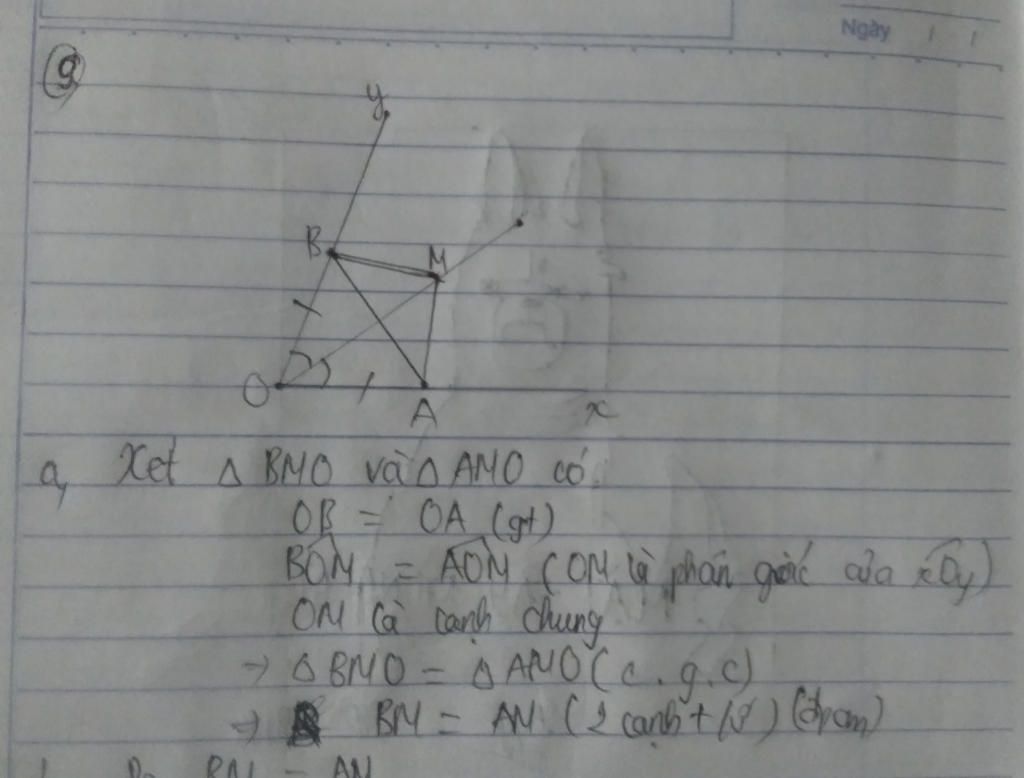 Ngày / /
9
y
B
M
O
A
x
a, Xét △ BMO và △ AMO có
OB = OA (gt)
BÔM = AÔM (OM là phân giác của xÔy)
OM là cạnh chung
→ △ BMO = △ AMO (c.g.c)
→ BM = AM (2 cạnh t/ứ) (đpcm)
BM = AM